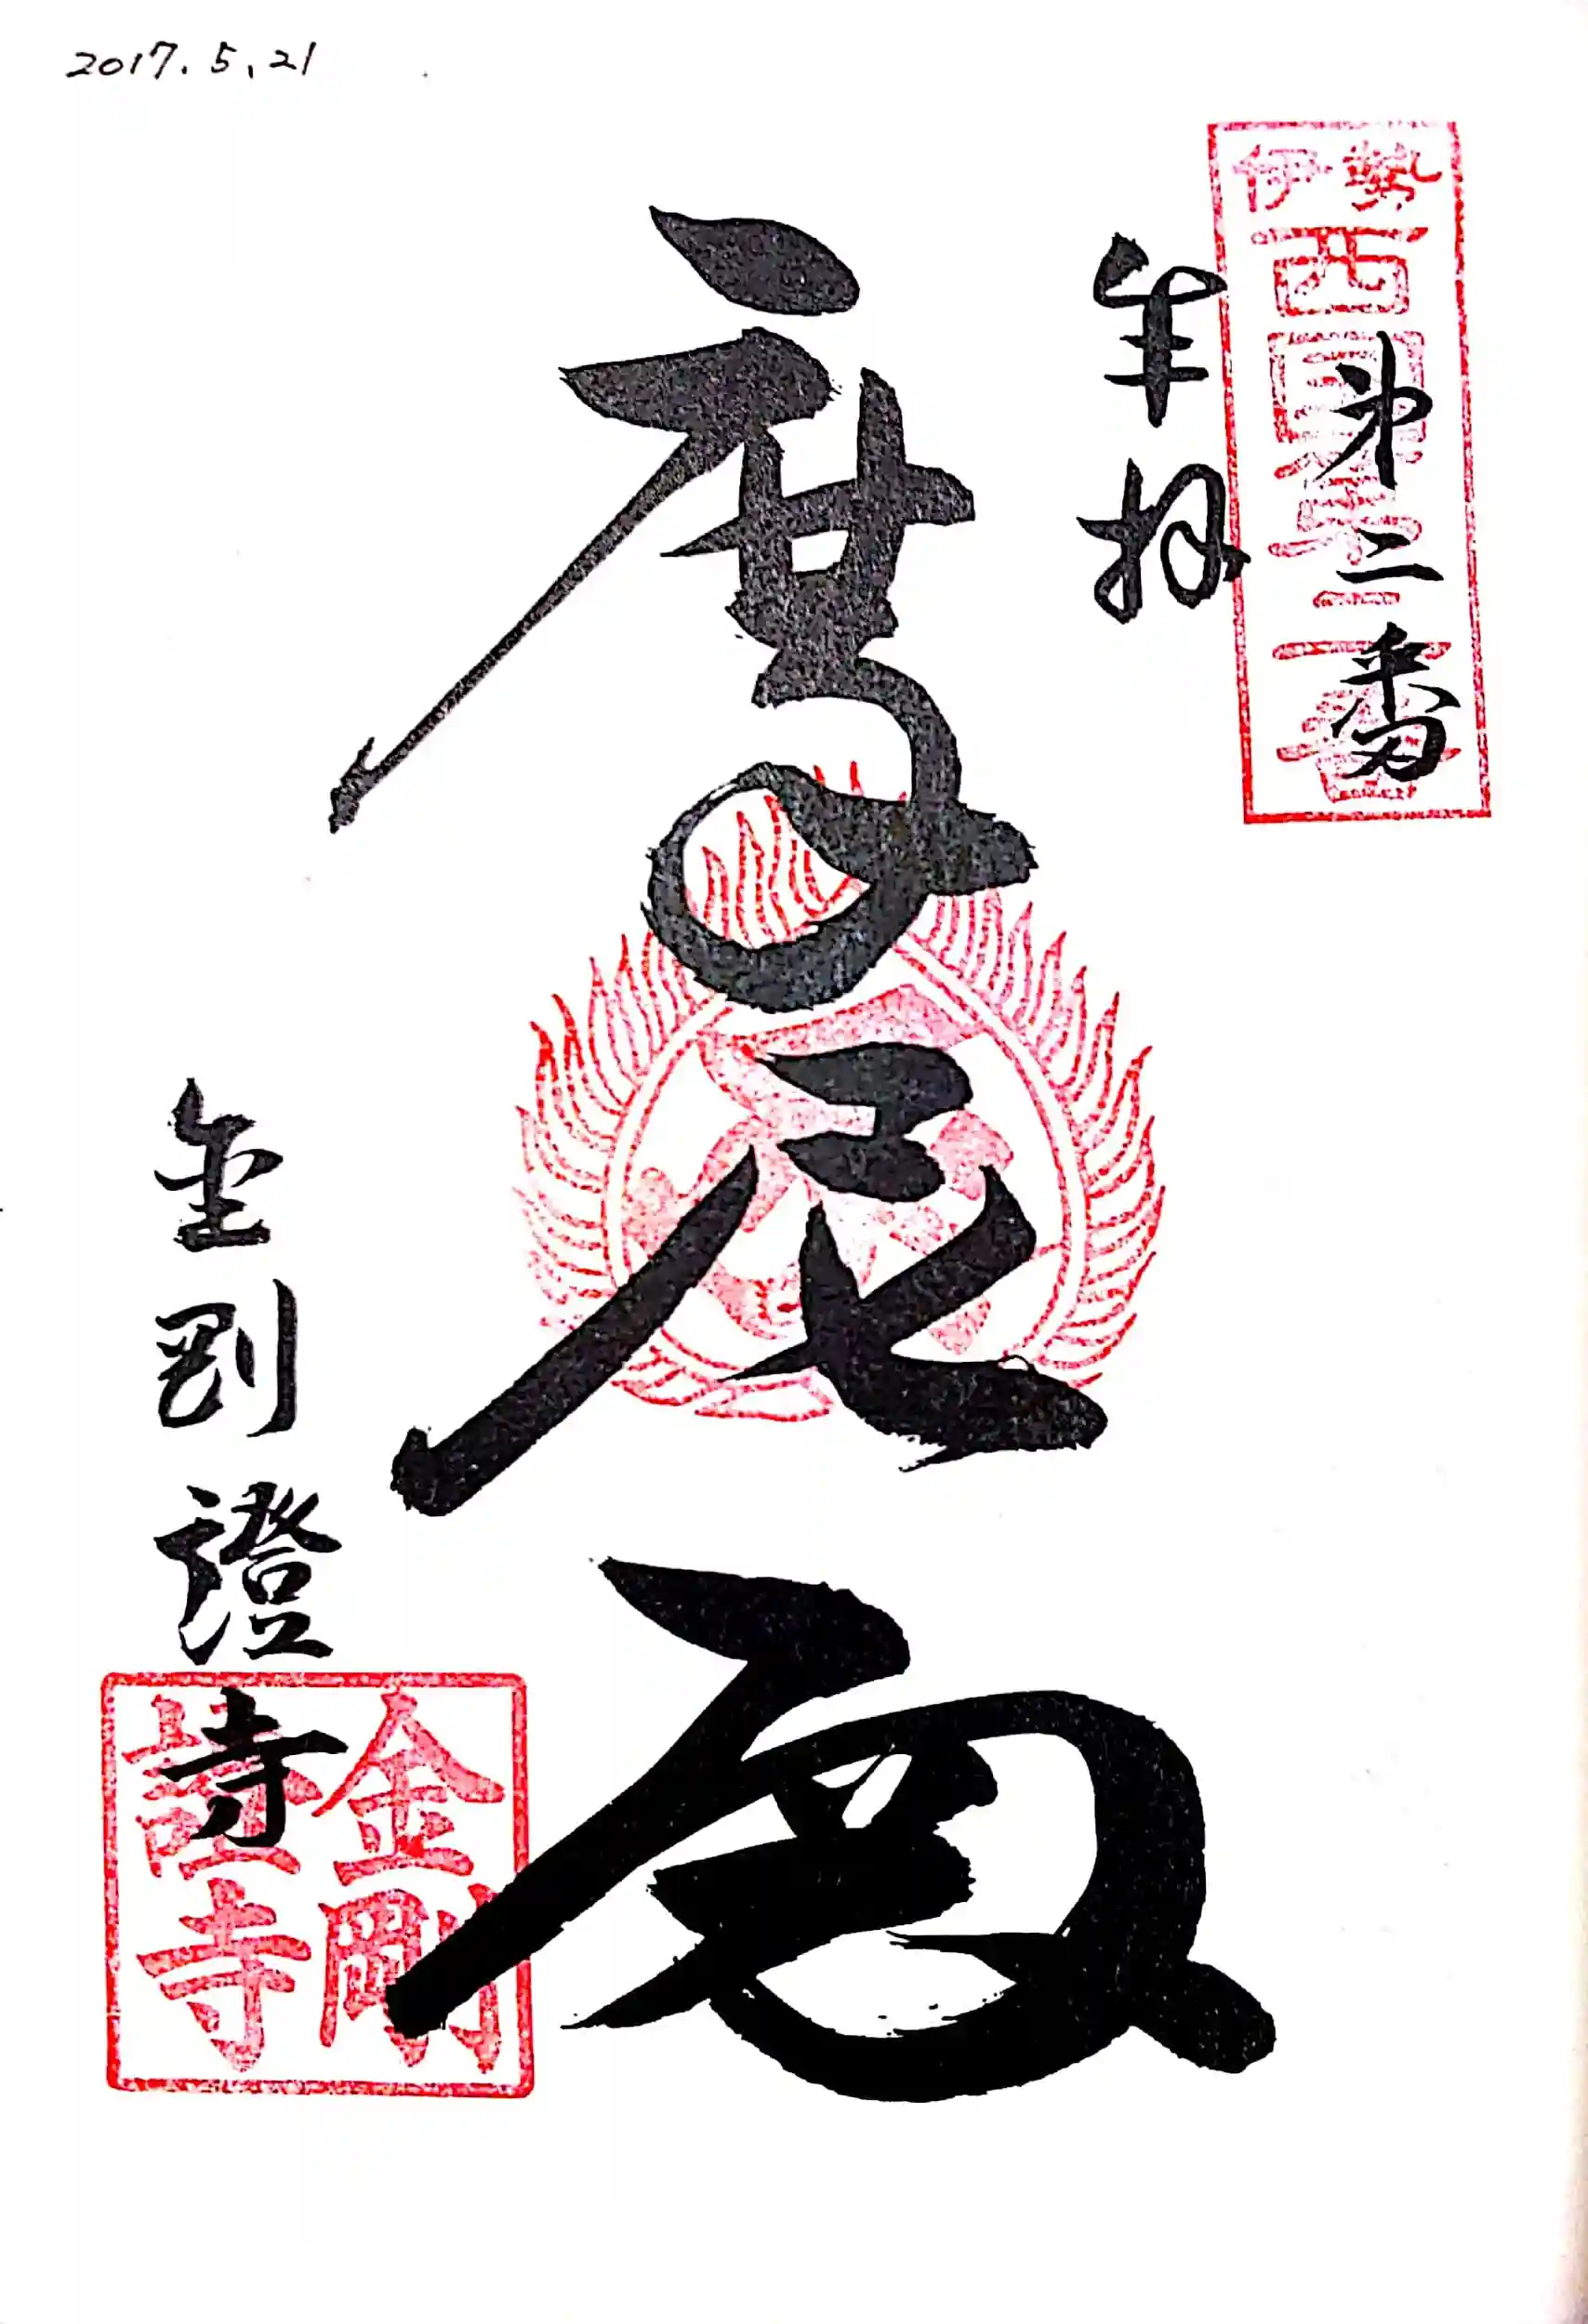 2017.5.21
伊勢
西国
番
第二番
奉拝
摩尼殿
金剛證寺
金剛
證寺